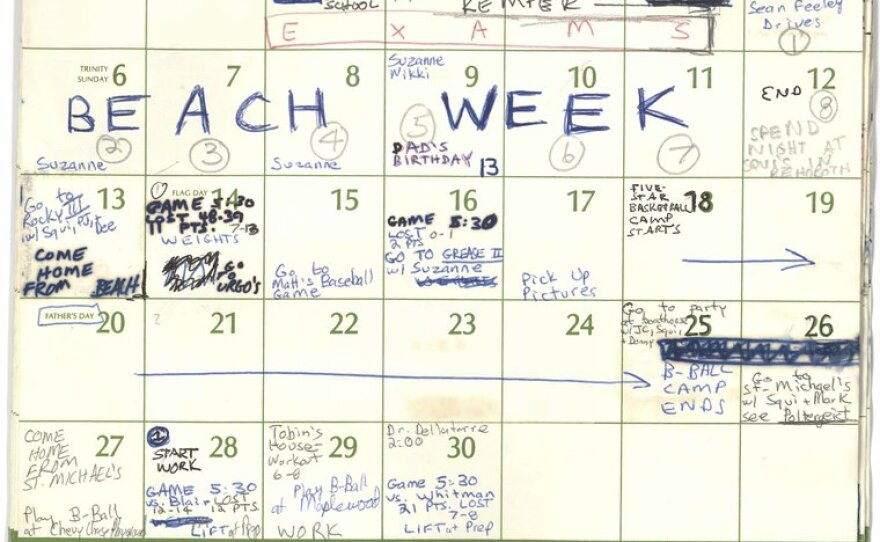 SCHOOL
KEMPER
E X A M S
Sean Feeley
Drives
1
TRINITY
SUNDAY
6
7
8
Suzanne
Nikki
9
10
11
12
BEACH WEEK
END
8
2
3
4
5
6
7
SPEND
NIGHT AT
SQUI'S IN
REHOBOTH
Suzanne
Suzanne
DAD'S
BIRTHDAY
13
13
Go to
Rocky III
w/ Squi, PJ,
COME
HOME
FROM BEACH
FLAG DAY
14
GAME 5:30
LOST 48-39
11 PTS. 7-13
WEIGHTS
GO
TO
URGO'S
15
Go to
Matt's Baseball
Game
16
GAME 5:30
LOST 0-1
2 PTS
GO TO GREASE II
w/ Suzanne
17
Pick Up
Pictures
FIVE-
STAR
BASKETBALL
CAMP
STARTS
18
19
FATHER'S DAY
20
21
22
23
24
Go to party
at boathouse
w/ JC, Squi
+ Denny
25
B-BALL
CAMP
ENDS
26
Go to
St. Michael's
w/ Squi + Mark
see Poltergeist
COME
HOME
FROM
ST. MICHAEL'S
27
Play B-Ball
at Chevy Chase
1
START
WORK
28
GAME 5:30
vs. Blair LOST
12-14 12 PTS.
LIFT at Prep
Tobin's
House-
Workout
6-8
29
Play B-Ball
at Maplewood
WORK
Dr. Dellatorre
2:00
30
GAME 5:30
vs. Whitman
21 PTS. LOST
7-8
LIFT at Prep